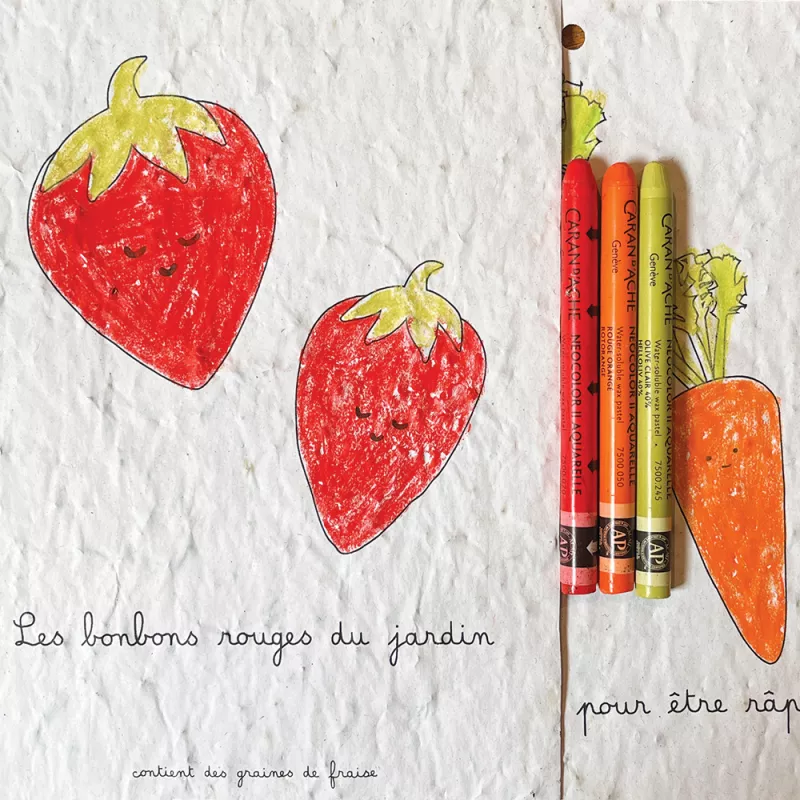 Les bonbons rouges du jardin
contient des graines de fraise
CARAN D'ACHE NEOCOLOR II AQUARELLE
CARAN D'ACHE NEOCOLOR II AQUARELLE
Genève Water-soluble wax pastel 7500.050
ROUGE ORANGE
ROTORANGE
CARAN D'ACHE NEOCOLOR II AQUARELLE
Genève Water-soluble wax pastel 7500.245
OLIVE CLAIR 40%
HELLOLIV 40%
AP
AP
AP
pour être râp